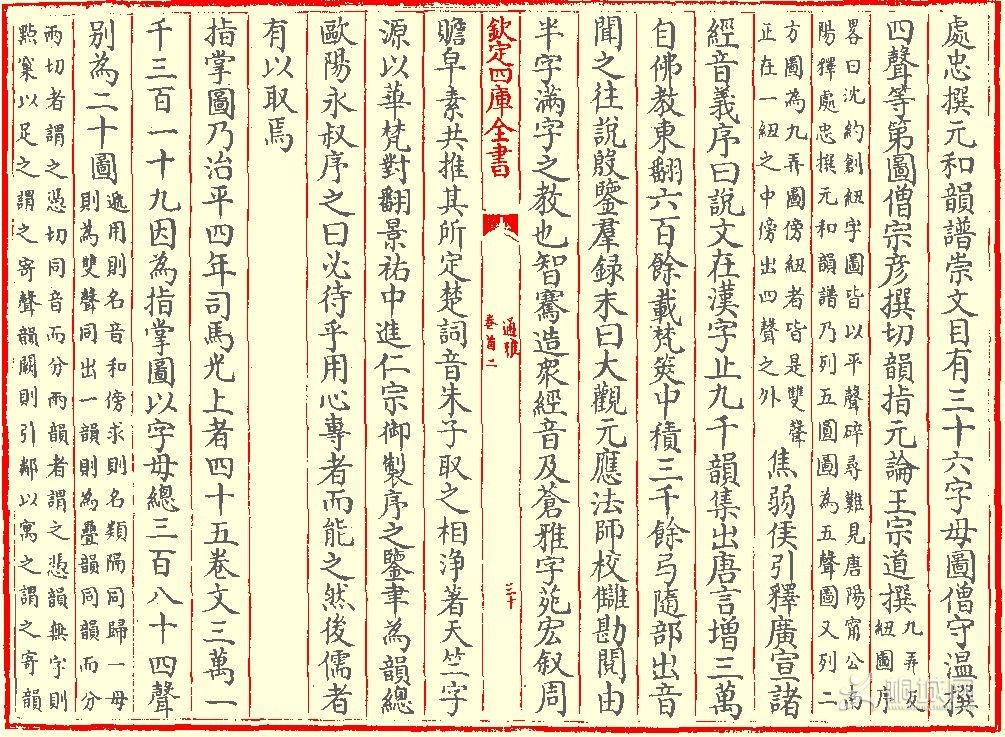 處忠撰元和韻譜崇文目有三十六字母圖僧守温撰
四聲等第圖僧宗彦撰切韻指元論王宗道撰九弄反
紐圖序
畧曰沈約創紐字圖皆以平聲碎尋難見唐陽甯公南
陽釋處忠撰元和韻譜乃列五圖為五聲圖又列二
方圖為九弄圖傍紐者皆是雙聲
正在一紐之中傍出四聲之外
焦弱侯引釋廣宣諸
經音義序曰說文在漢字止九千韻集出唐言增三萬
自佛教東翻六百餘載梵筴中積三千餘弓隨部出音
聞之往說殷鑒羣録末曰大觀元應法師校讎勘閲由
半字滿字之教也智騫造衆經音及蒼雅字苑宏叙周
欽定四庫全書
通雅
卷首二
三十
贍早素共推其所定楚詞音朱子取之相浄著天竺字
源以華梵對翻景祐中進仁宗御製序之鑒聿為韻總
歐陽永叔序之曰必待乎用心專者而能之然後儒者
有以取焉
指掌圖乃治平四年司馬光上者四十五卷文三萬一
千三百一十九因為指掌圖以字母總三百八十四聲
别為二十圖
遞用則名音和傍求則名類隔同歸一母
則為雙聲同出一韻則為疊韻同韻而分
兩切者謂之憑切同音而分兩韻者謂之憑韻無字則
點窠以足之謂之寄聲韻闕則引鄰以寓之謂之寄韻